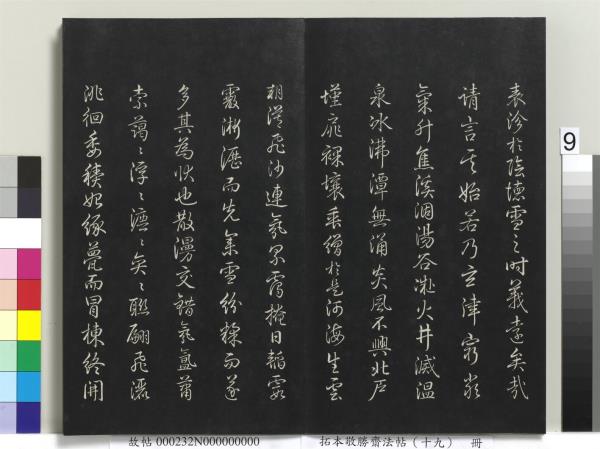 表沴於陰德雪之時義遠矣哉
請言其始若乃玄律窮嚴
氣升焦溪涸湯谷凝火井滅溫
泉冰沸潭無涌炎風不興北戶
墐扉裸壤垂繒於是河海生雲
朔漠飛沙連氛累靄掩日韜霞
霰淅瀝而先集雪紛糅而遂
多其為狀也散漫交錯氛氳蕭
索藹〻浮〻瀌〻奕〻聯翩飛灑
徘徊委積始緣甍而冒棟終開
9
故帖 000232N000000000 拓本敬勝齋法帖（十九） 冊